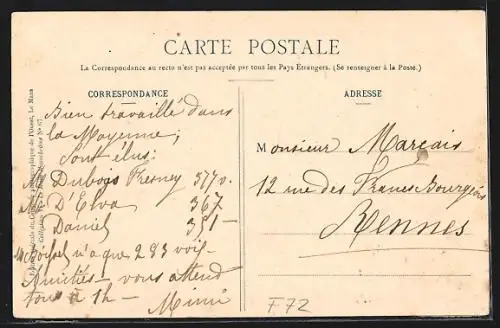 CARTE POSTALE
La Correspondance au recto n'est pas acceptée par tous les Pays Etrangers. (Se renseigner à la Poste.)
CORRESPONDANCE
Bien travaillé dans
la Mayenne;
Sont élus:
Mr Dubois Fresney 377 v.
Mr D'Elva 367
Daniel 351 —
n'a que 283 voix
Amitiés — vous attend
tous à 1h —
Mimi
ADRESSE
Monsieur Marçais
12 rue des Francs Bourgeois
Rennes
F72